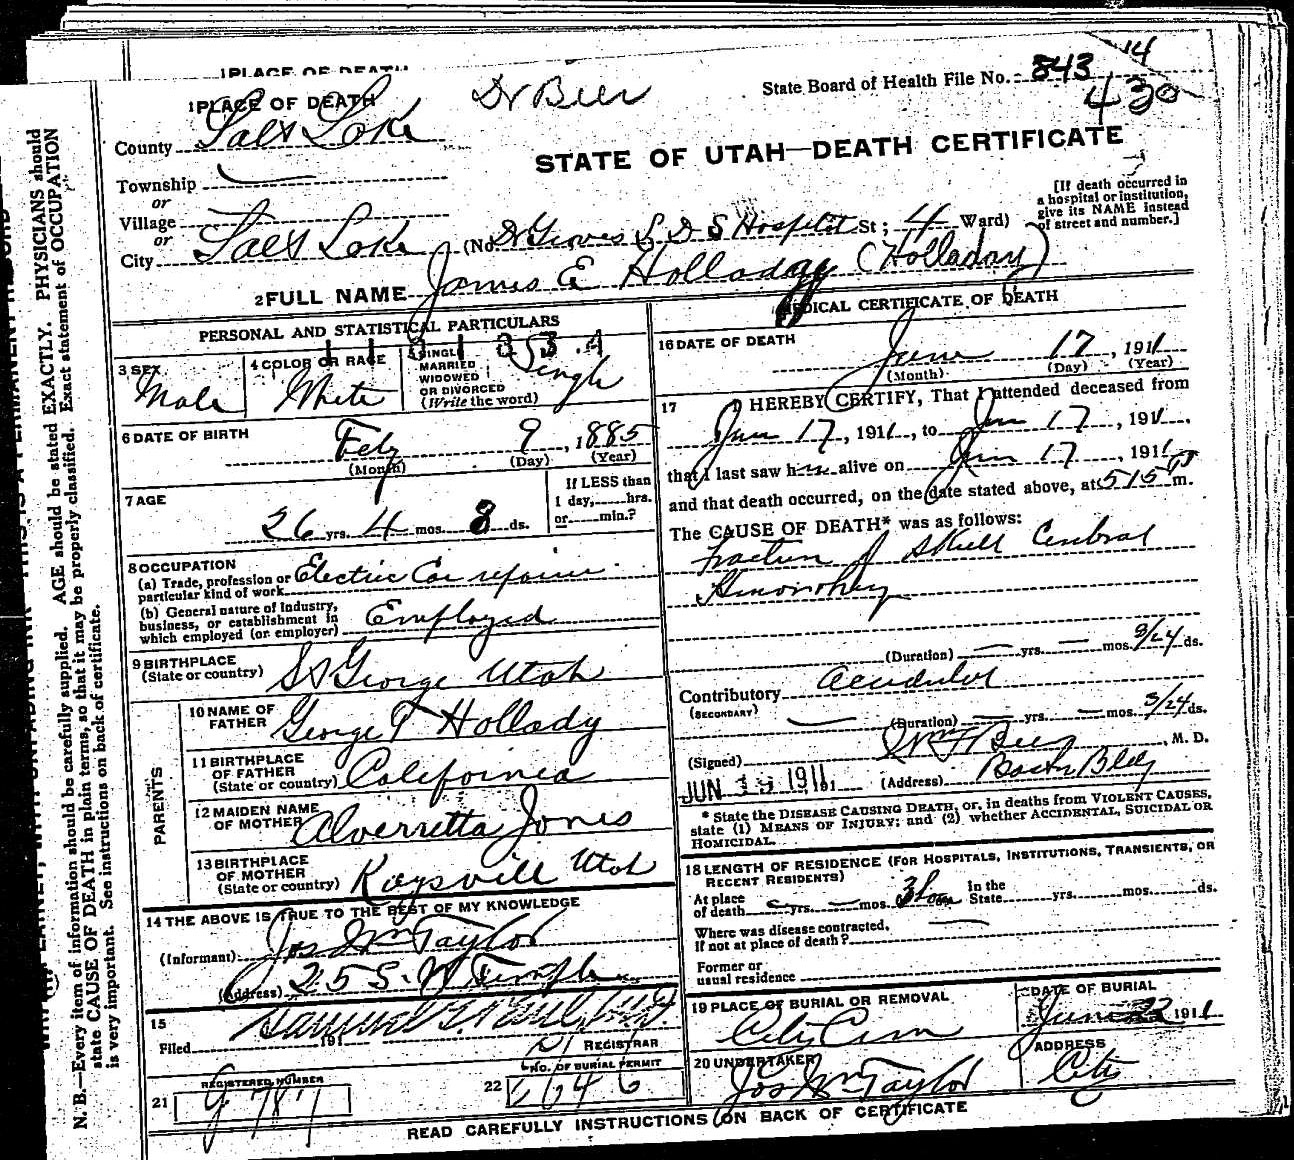 1 PLACE OF DEATH
1 PLACE OF DEATH
Dr Beer
State Board of Health File No. 843 14
430
County Salt Lake
STATE OF UTAH—DEATH CERTIFICATE
Township
or
Village
or
City Salt Lake (No. Dr Groves L D S Hospital St; 4 Ward)
[If death occurred in
a hospital or institution,
give its NAME instead
of street and number.]
2 FULL NAME James E Holladay (Holladay)
PERSONAL AND STATISTICAL PARTICULARS
3 SEX Male
4 COLOR OR RACE White
5 SINGLE
MARRIED
WIDOWED
OR DIVORCED
(Write the word) Single
6 DATE OF BIRTH
Feby 9, 1885
(Month) (Day) (Year)
7 AGE
26 yrs. 4 mos. 8 ds.
If LESS than
1 day, hrs.
or min.?
8 OCCUPATION
(a) Trade, profession or
particular kind of work Electric Car repairer
(b) General nature of Industry,
business, or establishment in
which employed (or employer) Employed
9 BIRTHPLACE
(State or country) St George Utah
PARENTS
10 NAME OF
FATHER George T Hollady
11 BIRTHPLACE
OF FATHER
(State or country) California
12 MAIDEN NAME
OF MOTHER Alverretta Jones
13 BIRTHPLACE
OF MOTHER
(State or country) Kaysvill Utah
14 THE ABOVE IS TRUE TO THE BEST OF MY KNOWLEDGE
(Informant) Jos Wm Taylor
(Address) 25 S. W Temple
15
Filed 191
REGISTRAR
REGISTERED NUMBER
21 G 787
NO. OF BURIAL PERMIT
22 G 1046
MEDICAL CERTIFICATE OF DEATH
16 DATE OF DEATH
June 17, 1911
(Month) (Day) (Year)
17 I HEREBY CERTIFY, That I attended deceased from
Jun 17, 1911, to Jun 17, 1911,
that I last saw him alive on Jun 17, 1911,
and that death occurred, on the date stated above, at 515 P m.
The CAUSE OF DEATH* was as follows:
Fracture of Skull Cerebral
Hemorrhage
(Duration) yrs. mos. 3/24 ds.
Contributory Accidental
(SECONDARY)
(Duration) yrs. mos. 3/24 ds.
(Signed) Wm F Beer, M. D.
JUN 19 1911 191 (Address) Boston Bldg
* State the DISEASE CAUSING DEATH, or, in deaths from VIOLENT CAUSES,
state (1) MEANS OF INJURY; and (2) whether ACCIDENTAL, SUICIDAL OR
HOMICIDAL.
18 LENGTH OF RESIDENCE (FOR HOSPITALS, INSTITUTIONS, TRANSIENTS, OR
RECENT RESIDENTS)
At place
of death yrs. mos. 3 hours In the
State yrs. mos. ds.
Where was disease contracted,
if not at place of death?
Former or
usual residence
19 PLACE OF BURIAL OR REMOVAL
City Cem
DATE OF BURIAL
June 22 1911
20 UNDERTAKER
Jos Wm Taylor
ADDRESS
City
READ CAREFULLY INSTRUCTIONS ON BACK OF CERTIFICATE
N. B.—Every item of information should be carefully supplied. AGE should be stated EXACTLY. PHYSICIANS should
state CAUSE OF DEATH in plain terms, so that it may be properly classified. Exact statement of OCCUPATION
is very important. See instructions on back of certificate.